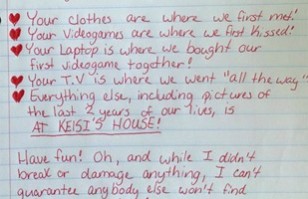 Your clothes are where we first met!
Your Videogames are where we first kissed!
Your Laptop is where we bought our
first videogame together!
Your T.V. is where we went "all the way"
Everything else, including pictures of
the last 2 years of our lives, is
AT KEISI'S HOUSE!
Have fun! Oh, and while I didn't
break or damage anything, I can't
guarantee anybody else won't find